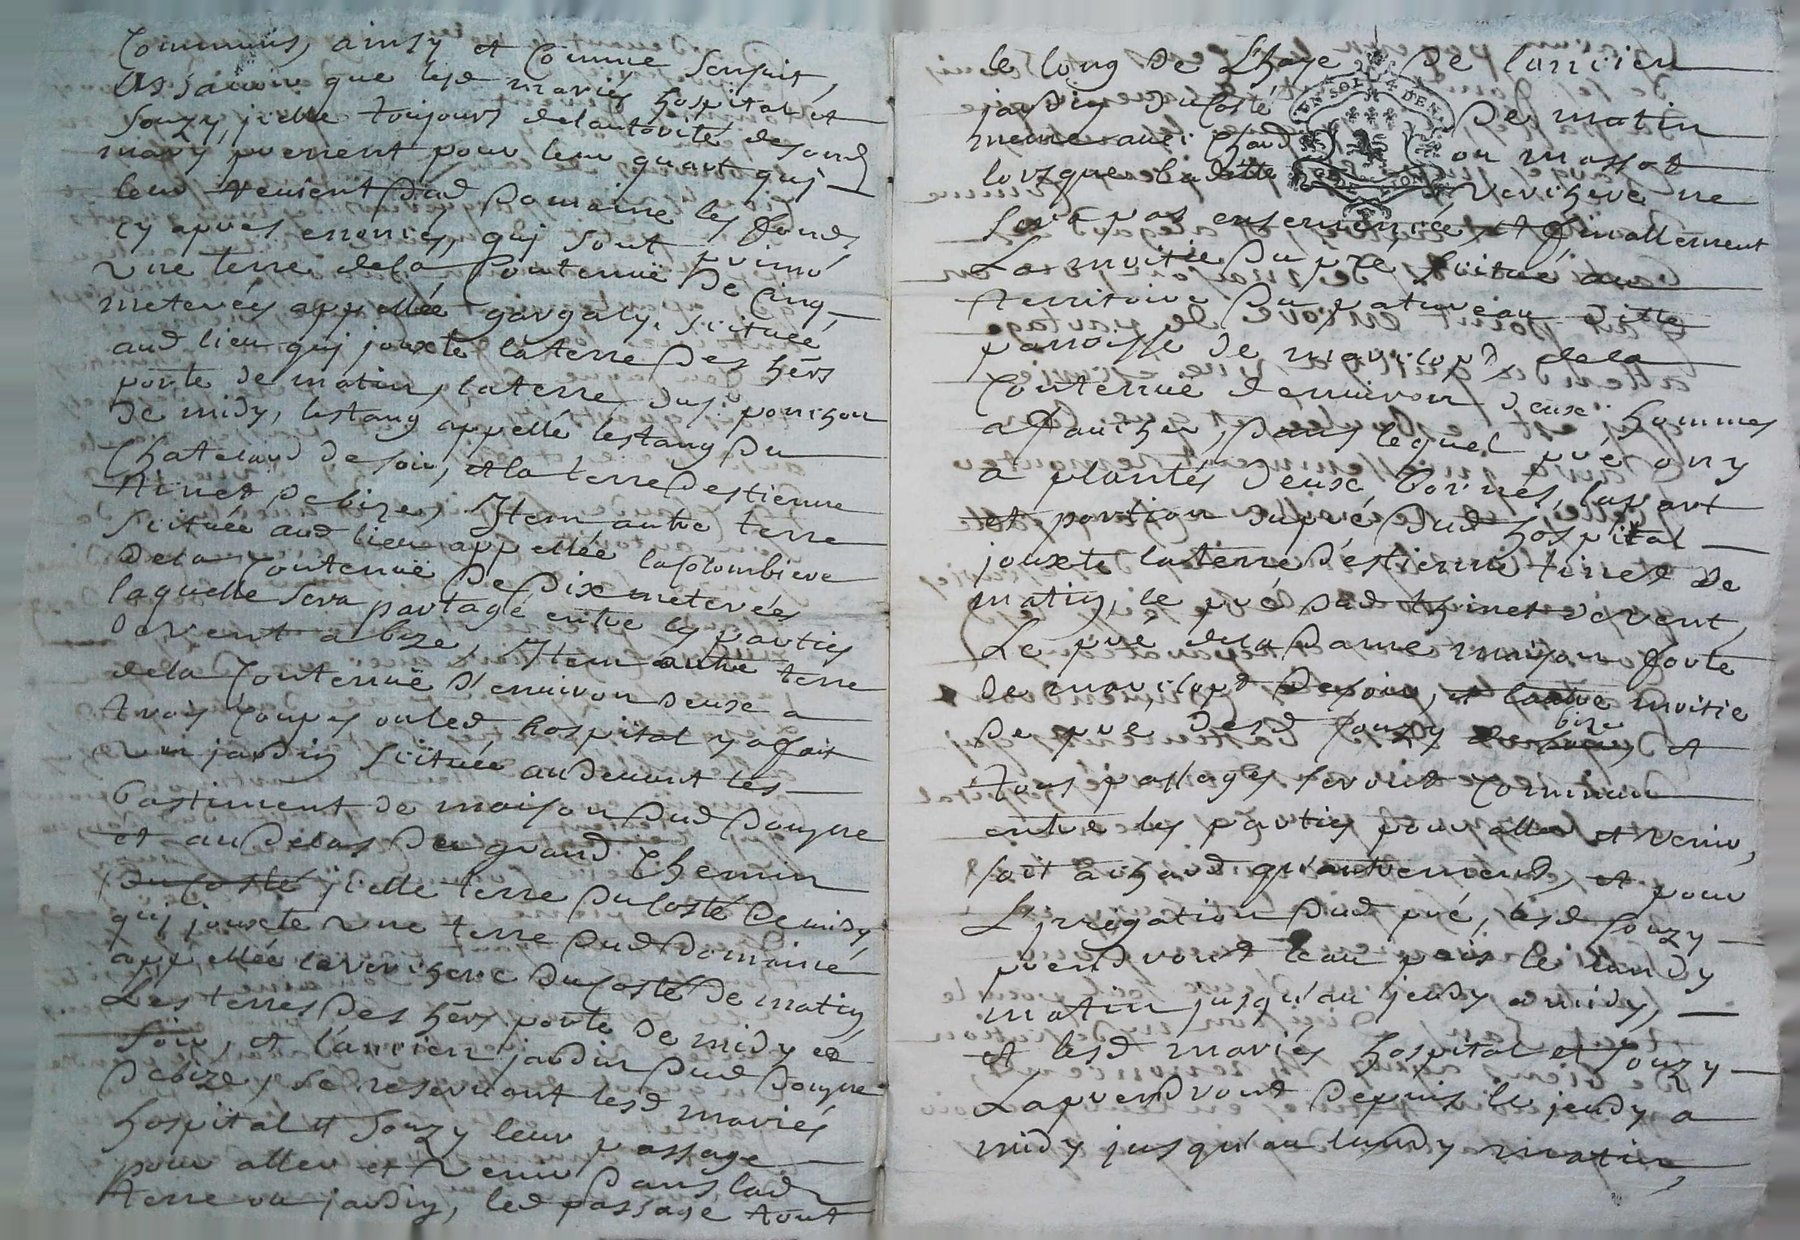 Communs, ainsy et Comme sensuit,
Asşavoir que lesd mariés hospital et
Souzy, jcelle toujours delautorité desond
mary prenent pour leur quart quj
leur revient dud Domaine les fonds
cy apres enoncés, quj sont primo
Une terre dela Contenue De Cinq
meterées appellée gargaly, scituée
aud lieu quj jouxte laterre Des hers
porte de matin, laterre dus.r ponchon
De midy, lestang appellé lestang Du
Chateland de soir, et la terre Destienne
tinet De bize, Jtem autre terre
Scituée aud lieu appellée lacolombiere
Dela Contenue De Dix meterées
laquelle sera partagé entre les parties
De vent a bize, Jtem autre terre
dela Contenue D'environ Deux a
trois Coupes ou led hospital y a fait
un jardin scituée audevant les
bastiment de maison Dud Domaine
et audelas Du grand Chemin
du costé jcelle terre Du Costé De midy
quj jouxte Une terre Dud Domaine
appellée la verchere Du Costé De matin
Les terres Des hers porte De midy et
Soir, et l'ancien jardin Dud Domaine
De bize, se reservant lesd mariés
hospital et Souzy leur passage
pour aller et Venir Dans lad
terre ou jardin, led passage tout
le long De L'haye De l'ancien
jardin Du Costé De matin
meme avec Chard ou
lorsque laditte Verchere ne
Sera pas ensemencée, et finallement
La moitié Du pré scitué au
territoire Du patureau Ditte
parroisse de
dela
Contenue d'environ deux hommes
a faucher, Dans lequel pré on y
a plantés Deux bornes, la part
et portion dupré Dud hospital
jouxte laterre D'estienne tinet De
matin, le pré Dud thinet De vent,
Le pré dela Dame maison forte
De De soir, et lautre moitié
De pré Desd Souzy bize et
tous passages seront Commun
entre les parties pour aller et Venir,
soit a Chard qu'autrement, et pour
L'jrrigation Dud pré, lesd Souzy
prendront leau Deis le lundy
matin jusqu'au jeudy a midy,
et lesd mariés hospital et Souzy
Laprendront Depuis le jeudy a
midy jusqu'au lundy matin,